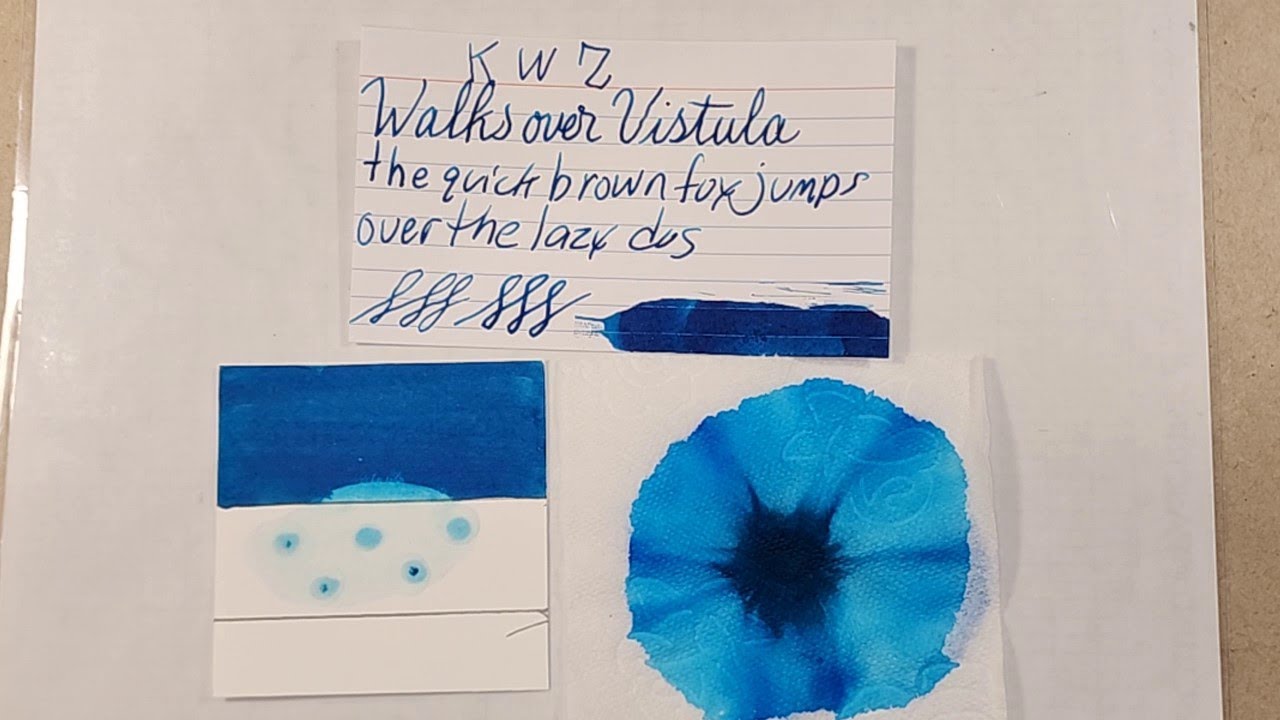 K W Z
Walks over Vistula
the quick brown fox jumps
over the lazy dog